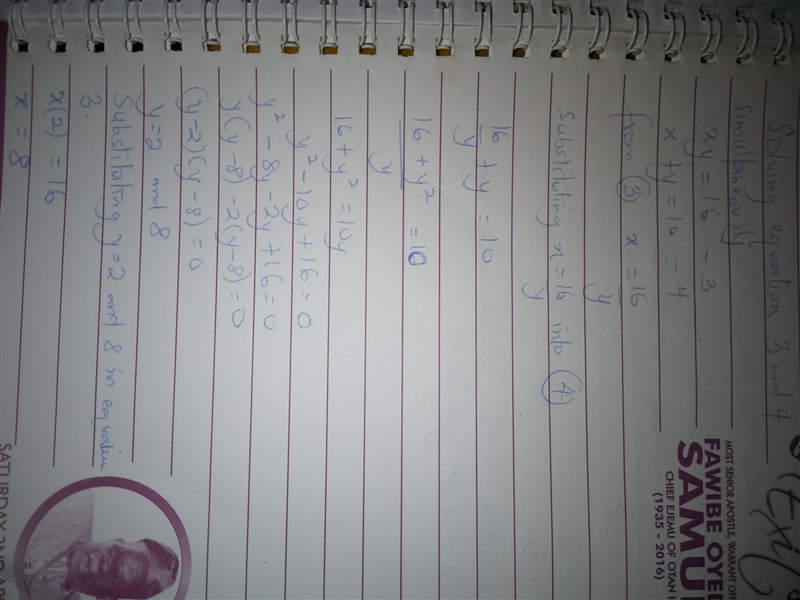 Solving equation 3 and 4
simultaneously
xy = 16 - 3
x + y = 10 - 4
from ③ x = 16/y
Substituting x = 16/y into ④
16/y + y = 10
16 + y²/y = 10
16 + y² = 10y
y² - 10y + 16 = 0
y² - 8y - 2y + 16 = 0
y(y - 8) - 2(y - 8) = 0
(y - 2)(y - 8) = 0
y = 2 and 8
Substituting y = 2 and 8 in equation
3.
x(2) = 16
x = 8
MOST SENIOR APOSTLE, WARRANT OFF
FAWIBE OYED
SAMU
CHIEF EJEMU OF OTAN
(1935 - 2016)